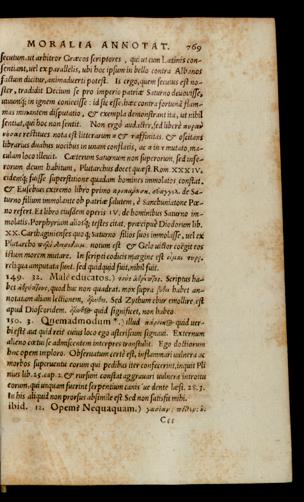 MORALIA ANNOTAT. 769
secutum. ut arbitror Græcos scriptores, qui ut cum Latinis con-
sentiant, uel ex parallelis, ubi hoc ipsum in bello contra Albanos
factum dicitur, animaduerti potest. Is ergo, quem secutus est no-
ster, tradidit Decium se pro imperio patriæ Saturno deuouisse,
utiunq; in ignem coniecisse: id sic esse, hæc contra fortunã flam-
mas mirantem disputatio, & exempla demonstrant ita, ut nihil
sentiat, qui hoc non sentit. Non ergo audaster, sed liberè
restitues nota est litterarum & affinitas. & oscitanti
librarius duabus uocibus in unam conflatis, ac in mutato, ma-
culam loco illeuit. Cæterum Saturnum non superorum, sed infe-
rorum deum habitum, Plutarchus docet quæst. Rom. XXXIV.
eidemq; fuisse superstitione quadam homines immolatos constat,
& Eusebius extremo libro primo de Sa-
turno filium immolante ob patriæ salutem, è Sanchuniatone Pœ-
no refert. Et libro eiusdem operis IV. de hominibus Saturno im-
molatis. Porphyrium aliosq; testes citat, præcipuè Diodorum lib.
XX. Carthaginenses quoq; Saturno filios suos immolasse, uel ex
Plutarcho notum est & Gelo uictor coëgit eos
istum morem mutare. In scripti codicis margine est
relìqua amputata sunt. sed quidquid fuit, nihil fuit.
149. 32. Malè educatos.) Scriptus ha-
bet quod huc non quadrat. mox supra habet an-
notatam aliam lectionem, Sed Zythum ebur emollire, est
apud Dioscoridem. quid significet, non habeo
150. 3. Quemadmodum *.) illud quid uer-
bi est? aut quid rei? cuius loco ego asteriscum signaui. Externum
alieno cœtui se admiscentem interpres transtulit. Ego doctiorum
hic opem imploro. Obseruatum certè est, inflammari uulnera ac
morbos superuentu eorum qui pedibus iter confecerint, inquit Pli
nius lib. 25. cap. 2. & rursum constat aggrauari uulnera introitu
eorum, qui unquam fuerint serpentium canisue dente læsi. 28. 3.
In his aliquid non prorsus absimile est. Sed non satisfit mihi.
ibid. 12. Opem? Nequaquam.)
Ccc